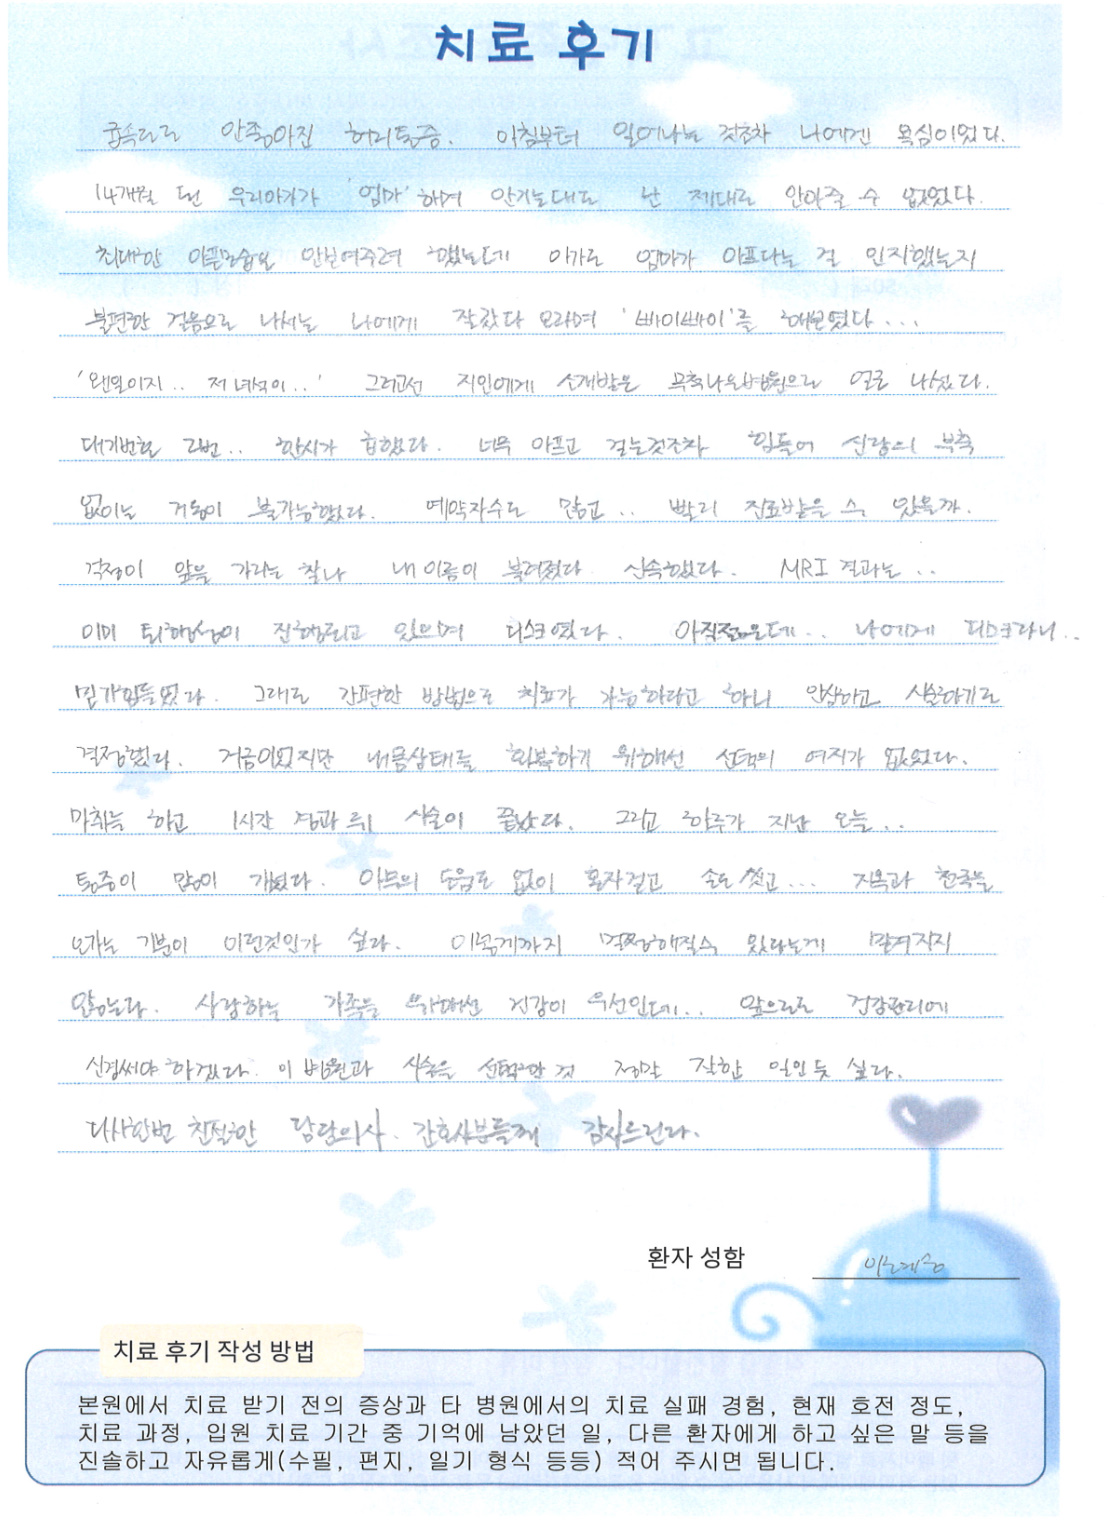 치료 후기
급속도로 안좋아진 허리통증. 아침부터 일어나는 것조차 나에겐 욕심이었다.
14개월 된 우리아가가 '엄마' 하며 안기는대도 난 제대로 안아줄 수 없었다.
최대한 아픈모습을 안보여주려 했는데 아가도 엄마가 아프다는 걸 인지했는지
불편한 걸음으로 나서는 나에게 잘갔다 오라며 '빠이빠이'를 해보였다...
'왠일이지.. 저 녀석이..' 그러고선 지인에게 소개받은 병원으로 얼른 나섰다.
대기번호 2번.. 한시가 급했다. 너무 아프고 걷는것조차 힘들어 신랑의 부축
없이는 거동이 불가능했다. 예약자수도 많고.. 빨리 진료받을 수 있을까.
걱정이 앞을 가리는 찰나 내 이름이 불려졌다. 신속했다. MRI 결과는..
이미 퇴행성이 진행되고 있으며 디스크였다. 아직젊은데.. 나에게 디스크라니..
믿기힘들었다. 그래도 간편한 방법으로 치료가 가능하다고 하니 안심하고 시술하기로
결정했다. 거금이었지만 내몸상태를 회복하기 위해선 선택의 여지가 없었다.
마취를 하고 1시간 경과 후 시술이 끝났다. 그리고 하루가 지난 오늘...
통증이 많이 개선됐다. 아무의 도움도 없이 혼자걷고 손도 씻고... 지옥과 천국을
오가는 기분이 이런것인가 싶다. 이렇게까지 멀쩡해질수 있다는게 믿겨지지
않는다. 사랑하는 가족을 위해선 건강이 우선인데.. 앞으로도 건강관리에
신경써야 하겠다. 이 병원과 시술을 선택한 것 정말 잘한 일인듯 싶다.
다시한번 친절한 담당의사. 간호사분들께 감사드린다.
환자 성함
치료 후기 작성 방법
본원에서 치료 받기 전의 증상과 타 병원에서의 치료 실패 경험, 현재 호전 정도,
치료 과정, 입원 치료 기간 중 기억에 남았던 일, 다른 환자에게 하고 싶은 말 등을
진솔하고 자유롭게(수필, 편지, 일기 형식 등등) 적어 주시면 됩니다.